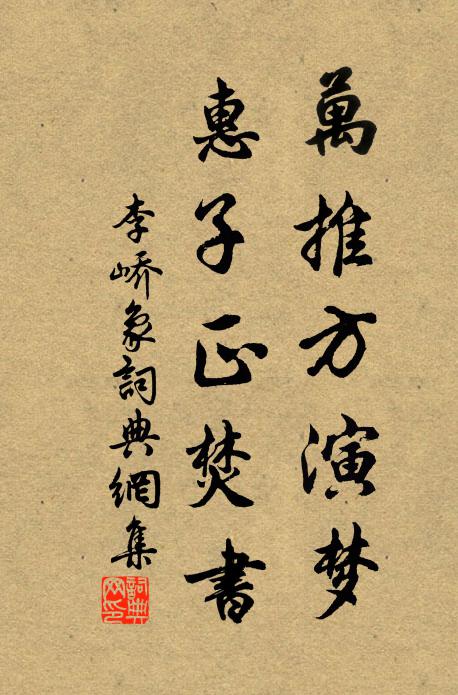 萬推方演梦
惠子正焚書
李峤象詞典網集
詞典网印